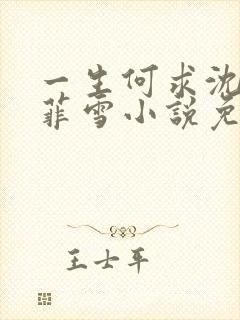 一生何求沈
菲雪小说免
王士平